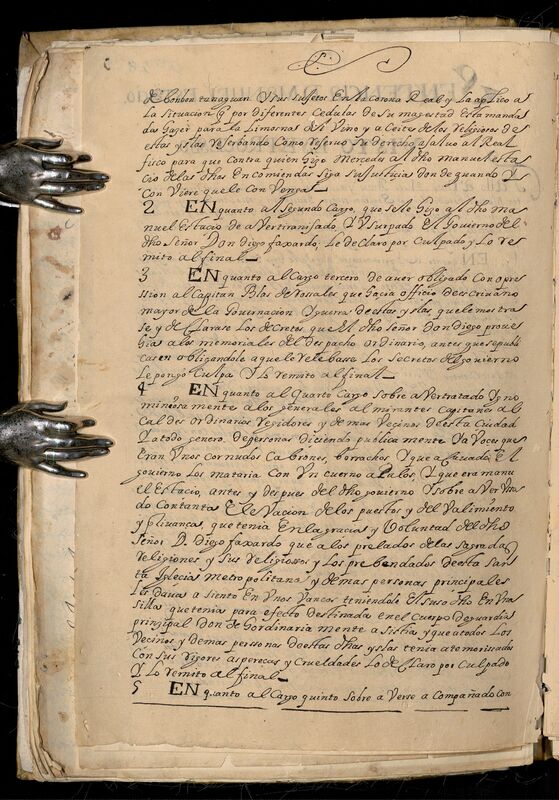 de bonbon tanaguan Y sus sugetos En la corona Real y La aplico a
La situacion q por diferentes Cedulas de su magestad esta manda
da hazer para la Limosna del Vino y a Ceite de los Religiosos de
estas yslas Reserbando Como reseruo su derecho asaluo al Real
fisco para que contra quien hizo Mercedes al dho manuel esta
cio de las dhas Encomiendas siga su Justicia donde quando Y
Con Viere que le con Venga
2 EN quanto al segundo Cargo, que se le hizo al dho ma
nuel Estacio de aVertiranisado, Y Vsurpado El Gouierno del
dho Señor Don diego faxardo, Le de Claro por Culpado y Lo Re
mito al final
3 EN quanto al Cargo tercero de auer obligado Con opre
ssion al Capitan Blas de Rossales que hacia officio de escriuano
mayor de la Gouernacion Y guerra de estas yslas, que le mostra
se y de Clarase Los decretos, que El dho señor don diego proue
hia a los memoriales del despacho ordinario, antes que se publi
casen obligandole a que le Rebelase Los secretos del gouierno
Le pongo Culpa Y Lo Remito al final
4 EN quanto al Quarto Cargo sobre aVertratado Ygno
miniosamente a los generales almirantes capitanes al
Caldes ordinarios Regidores y demas Vezinos de esta Ciudad
Y a todo genero de personas diciendo publica mente Da Voces que
Eran Vnos Cornudos Cabrones, borrachos Y que acauado El
gouierno Los mataria con Vn cuerno a palos, Y que era manu
el Estacio, antes y despues del dho gouierno Y sobre aVer Vsa
do Con tanta Elevacion de los puestos y del Valimiento
y priuança, que tenia En la gracia y Voluntad del dho
Señor D. Diego faxardo que a los prelados de las sagradas
Religiones y sus Religiossos y Los prebendados de esta san
ta Yglecia metropolitana y demas personas principales
Les daua a siento En Vnos Vancos teniendole El suso dho En Vna
silla que tenia para efecto destinada en el cuerpo de guardia
principal donde hordinaria mente a Sistia y que a todos Los
Vecinos y demas personas de estas dhas yslas tenia atemorissados
con sus rigores asperecas y Crueldades Lo de Claro por Culpado
Y Lo Remito al final
5 EN quanto al Cargo quinto sobre a Verse a Compañado con